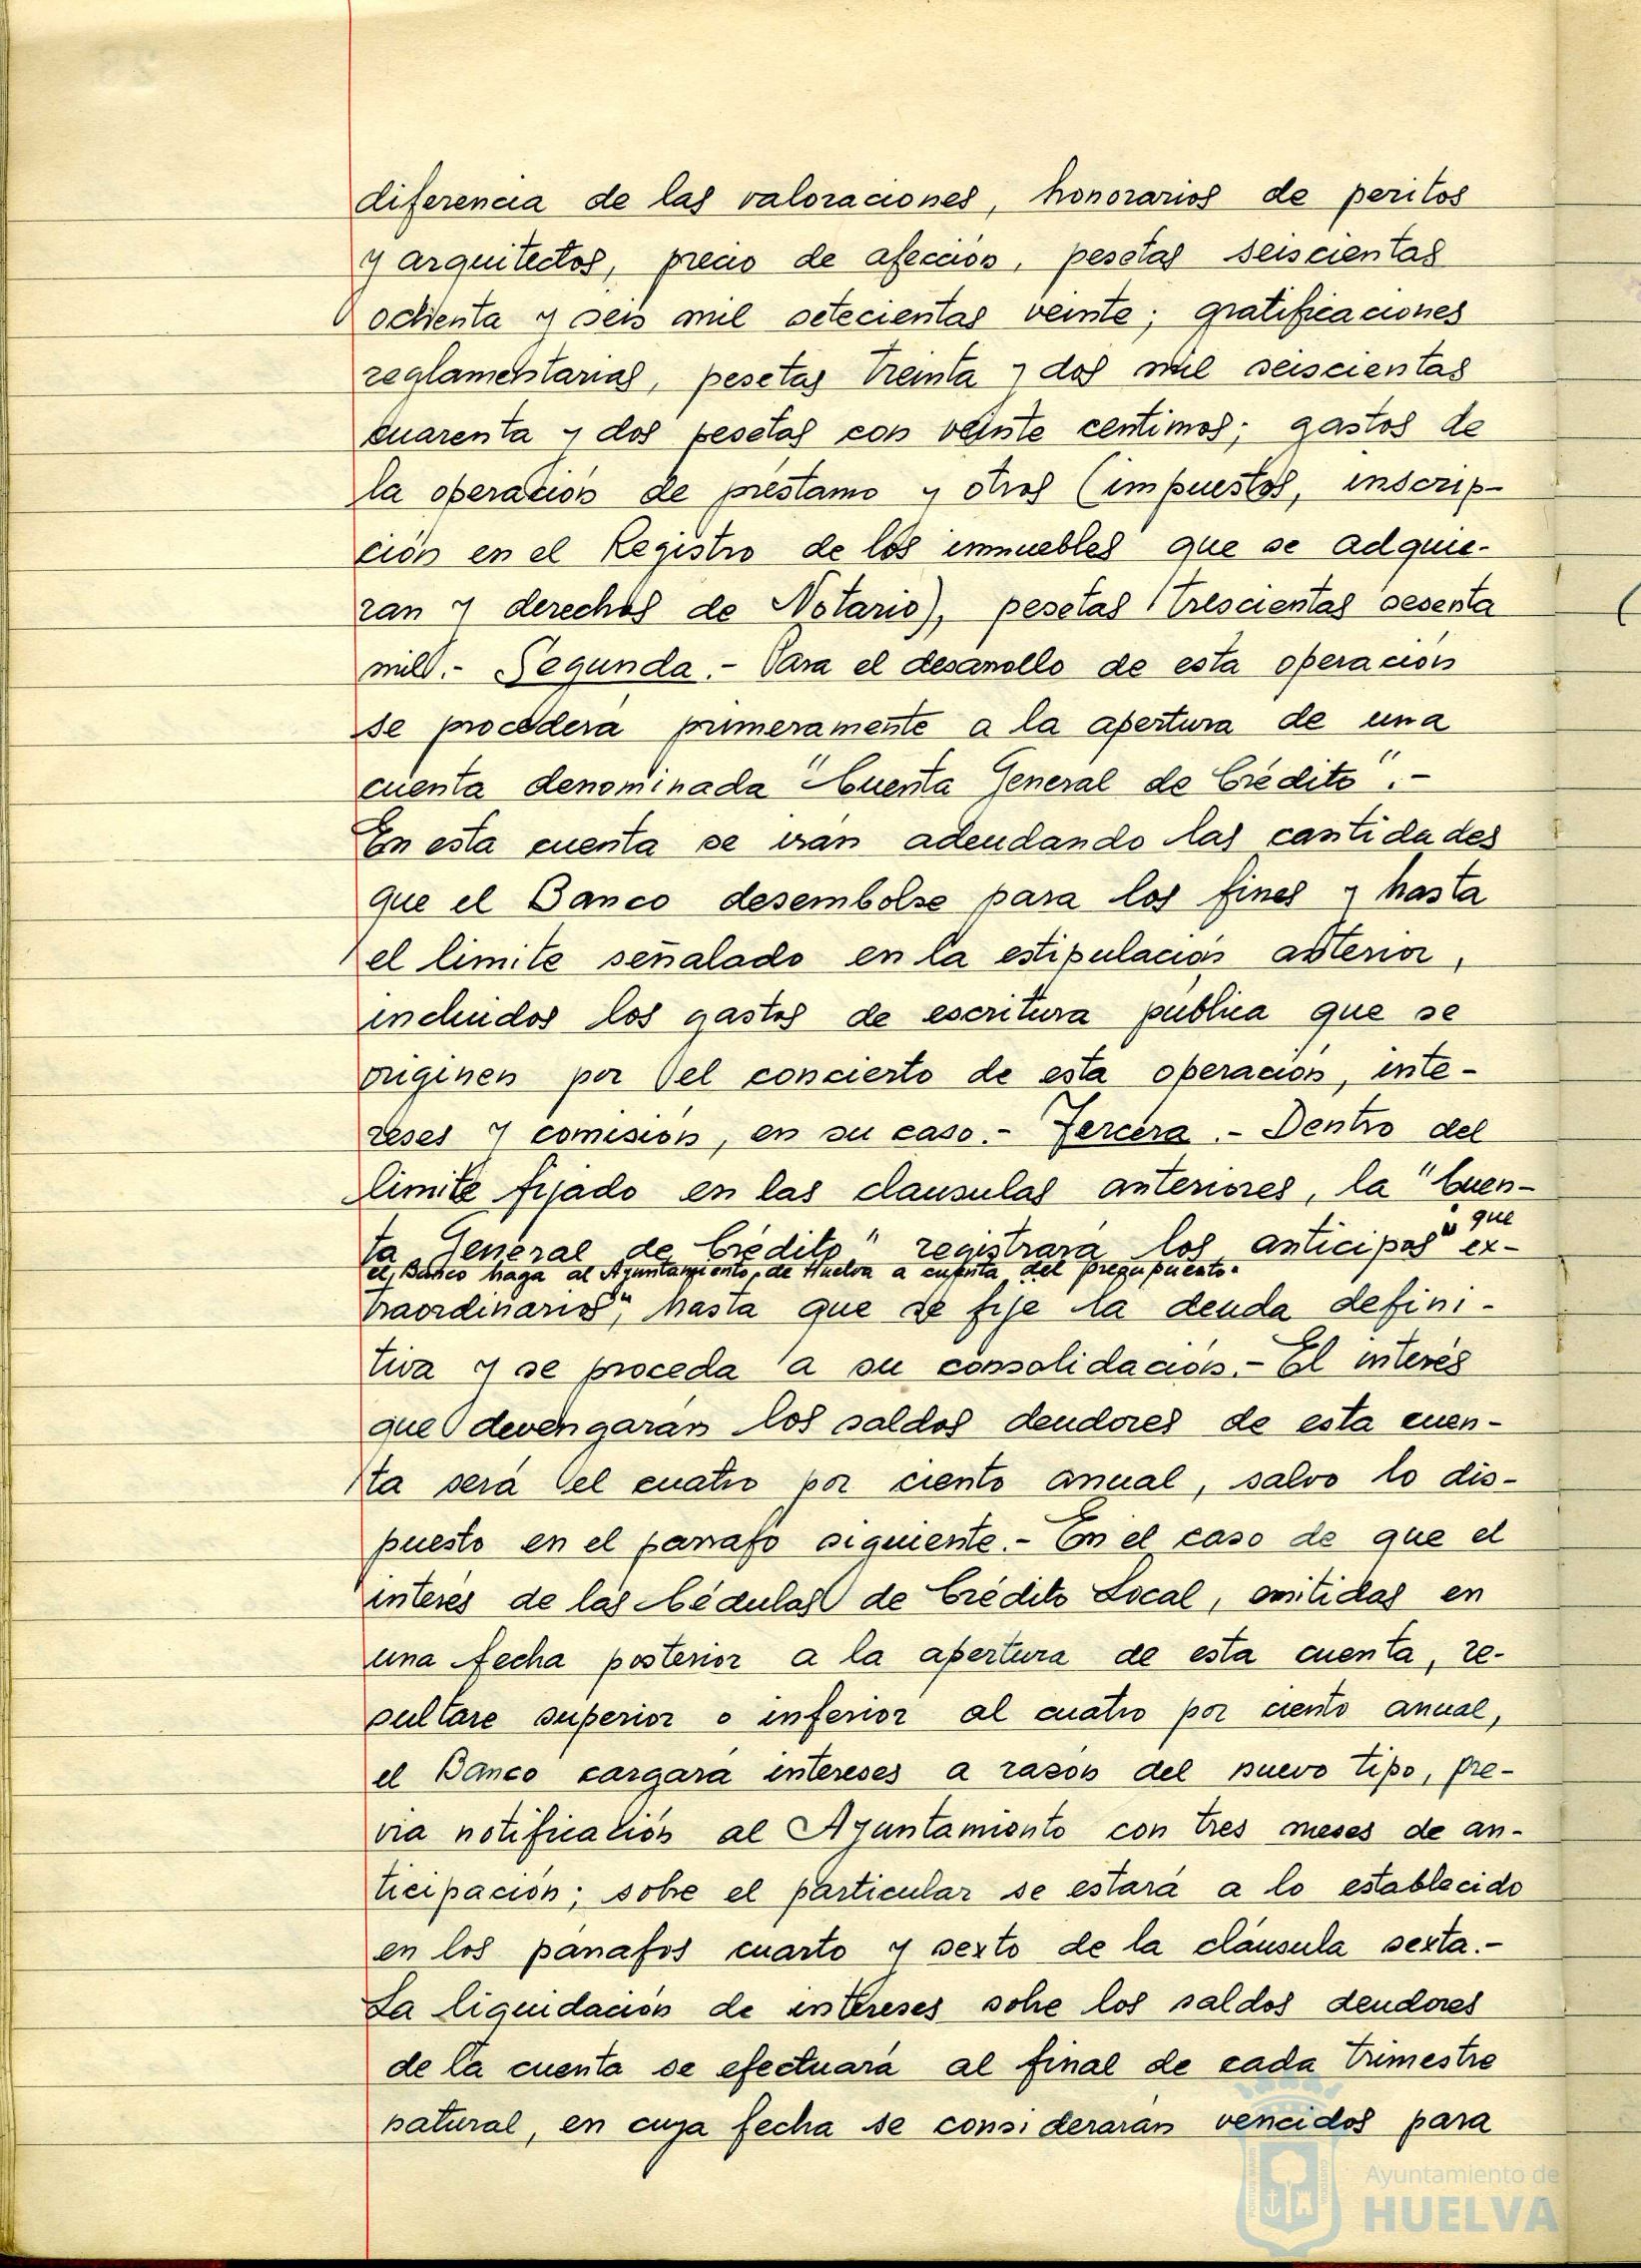 diferencia de las valoraciones, honorarios de peritos
y arquitectos, precio de afección, pesetas seiscientas
ochenta y seis mil setecientas veinte; gratificaciones
reglamentarias, pesetas treinta y dos mil seiscientas
cuarenta y dos pesetas con veinte centimos; gastos de
la operación de préstamo y otros (impuestos, inscrip-
ción en el Registro de los inmuebles que se adquie-
ran y derechos de Notario), pesetas trescientas sesenta
mil.- Segunda.- Para el desarrollo de esta operación
se procederá primeramente a la apertura de una
cuenta denominada "Cuenta General de Crédito".-
En esta cuenta se irán adeudando las cantidades
que el Banco desembolse para los fines y hasta
el limite señalado en la estipulación anterior,
incluidos los gastos de escritura pública que se
originen por el concierto de esta operación, inte-
reses y comisión, en su caso.- Tercera.- Dentro del
limite fijado en las clausulas anteriores, la "Cuen-
ta General de Crédito" registrará los anticipos" que ex-
el Banco haga al Ayuntamiento de Huelva a cuenta del presupuesto-
traordinario", hasta que se fije la deuda defini-
tiva y se proceda a su consolidación.- El interés
que devengarán los saldos deudores de esta cuen-
ta será el cuatro por ciento anual, salvo lo dis-
puesto en el parrafo siguiente.- En el caso de que el
interés de las Cédulas de Crédito Local, emitidas en
una fecha posterior a la apertura de esta cuenta, re-
sultare superior o inferior al cuatro por ciento anual,
el Banco cargará intereses a razón del nuevo tipo, pre-
via notificación al Ayuntamiento con tres meses de an-
ticipación; sobre el particular se estará a lo establecido
en los párrafos cuarto y sexto de la cláusula sexta.-
La liquidación de intereses sobre los saldos deudores
de la cuenta se efectuará al final de cada trimestre
natural, en cuya fecha se considerarán vencidos para
Ayuntamiento de
HUELVA